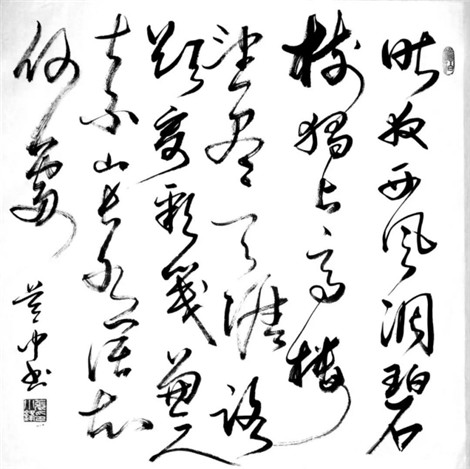 昨夜西風凋碧
樹獨上高樓
望盡天涯路
欲寄彩箋兼尺
素山長水闊知
何處